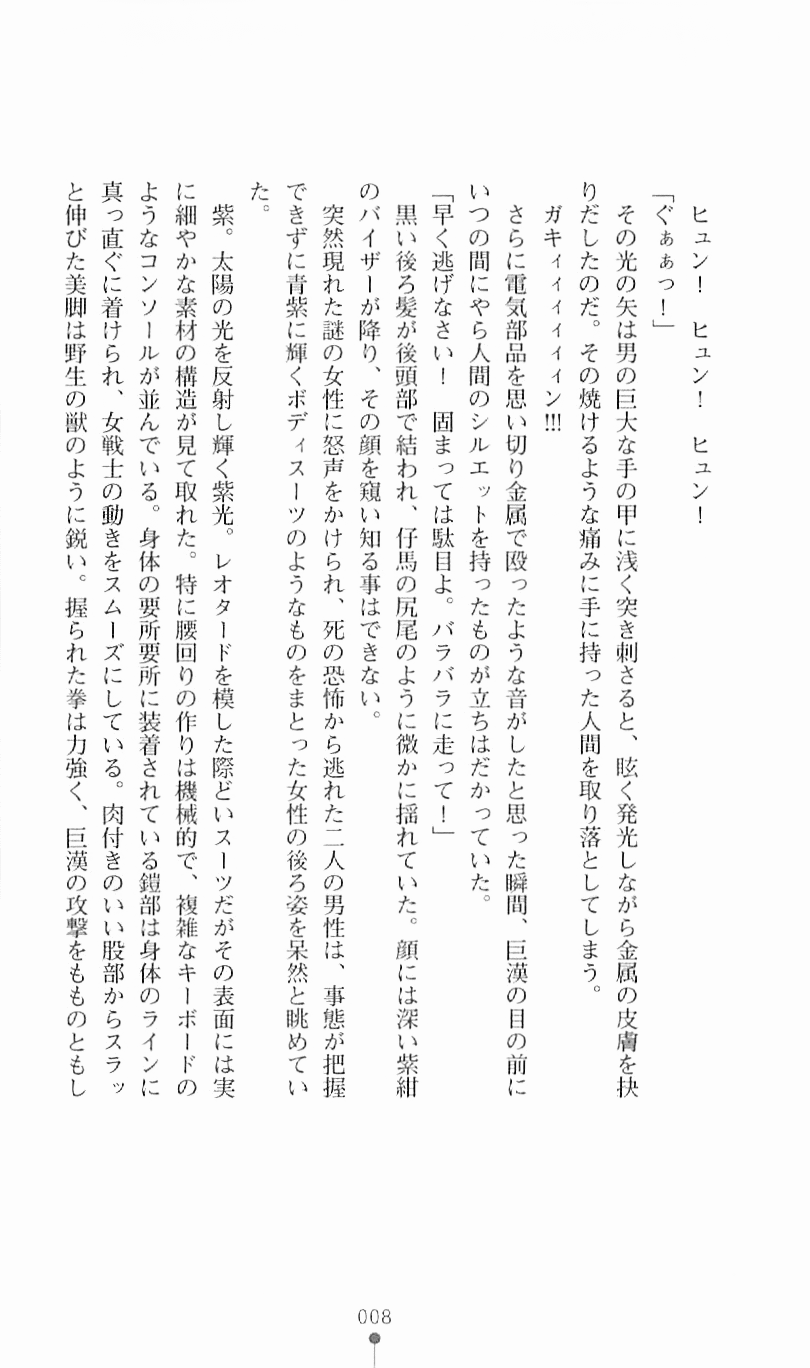 ヒュン！　ヒュン！　ヒュン！
「ぐぁぁっ！」
その光の矢は男の巨大な手の甲に浅く突き刺さると、眩く発光しながら金属の皮膚を抉
りだしたのだ。その焼けるような痛みに手に持った人間を取り落としてしまう。
ガキィィィィィン!!!
さらに電気部品を思い切り金属で殴ったような音がしたと思った瞬間、巨漢の目の前に
いつの間にやら人間のシルエットを持ったものが立ちはだかっていた。
「早く逃げなさい！　固まっては駄目よ。バラバラに走って！」
黒い後ろ髪が後頭部で結われ、仔馬の尻尾のように微かに揺れていた。顔には深い紫紺
のバイザーが降り、その顔を窺い知る事はできない。
突然現れた謎の女性に怒声をかけられ、死の恐怖から逃れた二人の男性は、事態が把握
できずに青紫に輝くボディスーツのようなものをまとった女性の後ろ姿を呆然と眺めてい
た。
紫。太陽の光を反射し輝く紫光。レオタードを模した際どいスーツだがその表面には実
に細やかな素材の構造が見て取れた。特に腰回りの作りは機械的で、複雑なキーボードの
ようなコンソールが並んでいる。身体の要所要所に装着されている鎧部は身体のラインに
真っ直ぐに着けられ、女戦士の動きをスムーズにしている。肉付きのいい股部からスラッ
と伸びた美脚は野生の獣のように鋭い。握られた拳は力強く、巨漢の攻撃をものともし
008